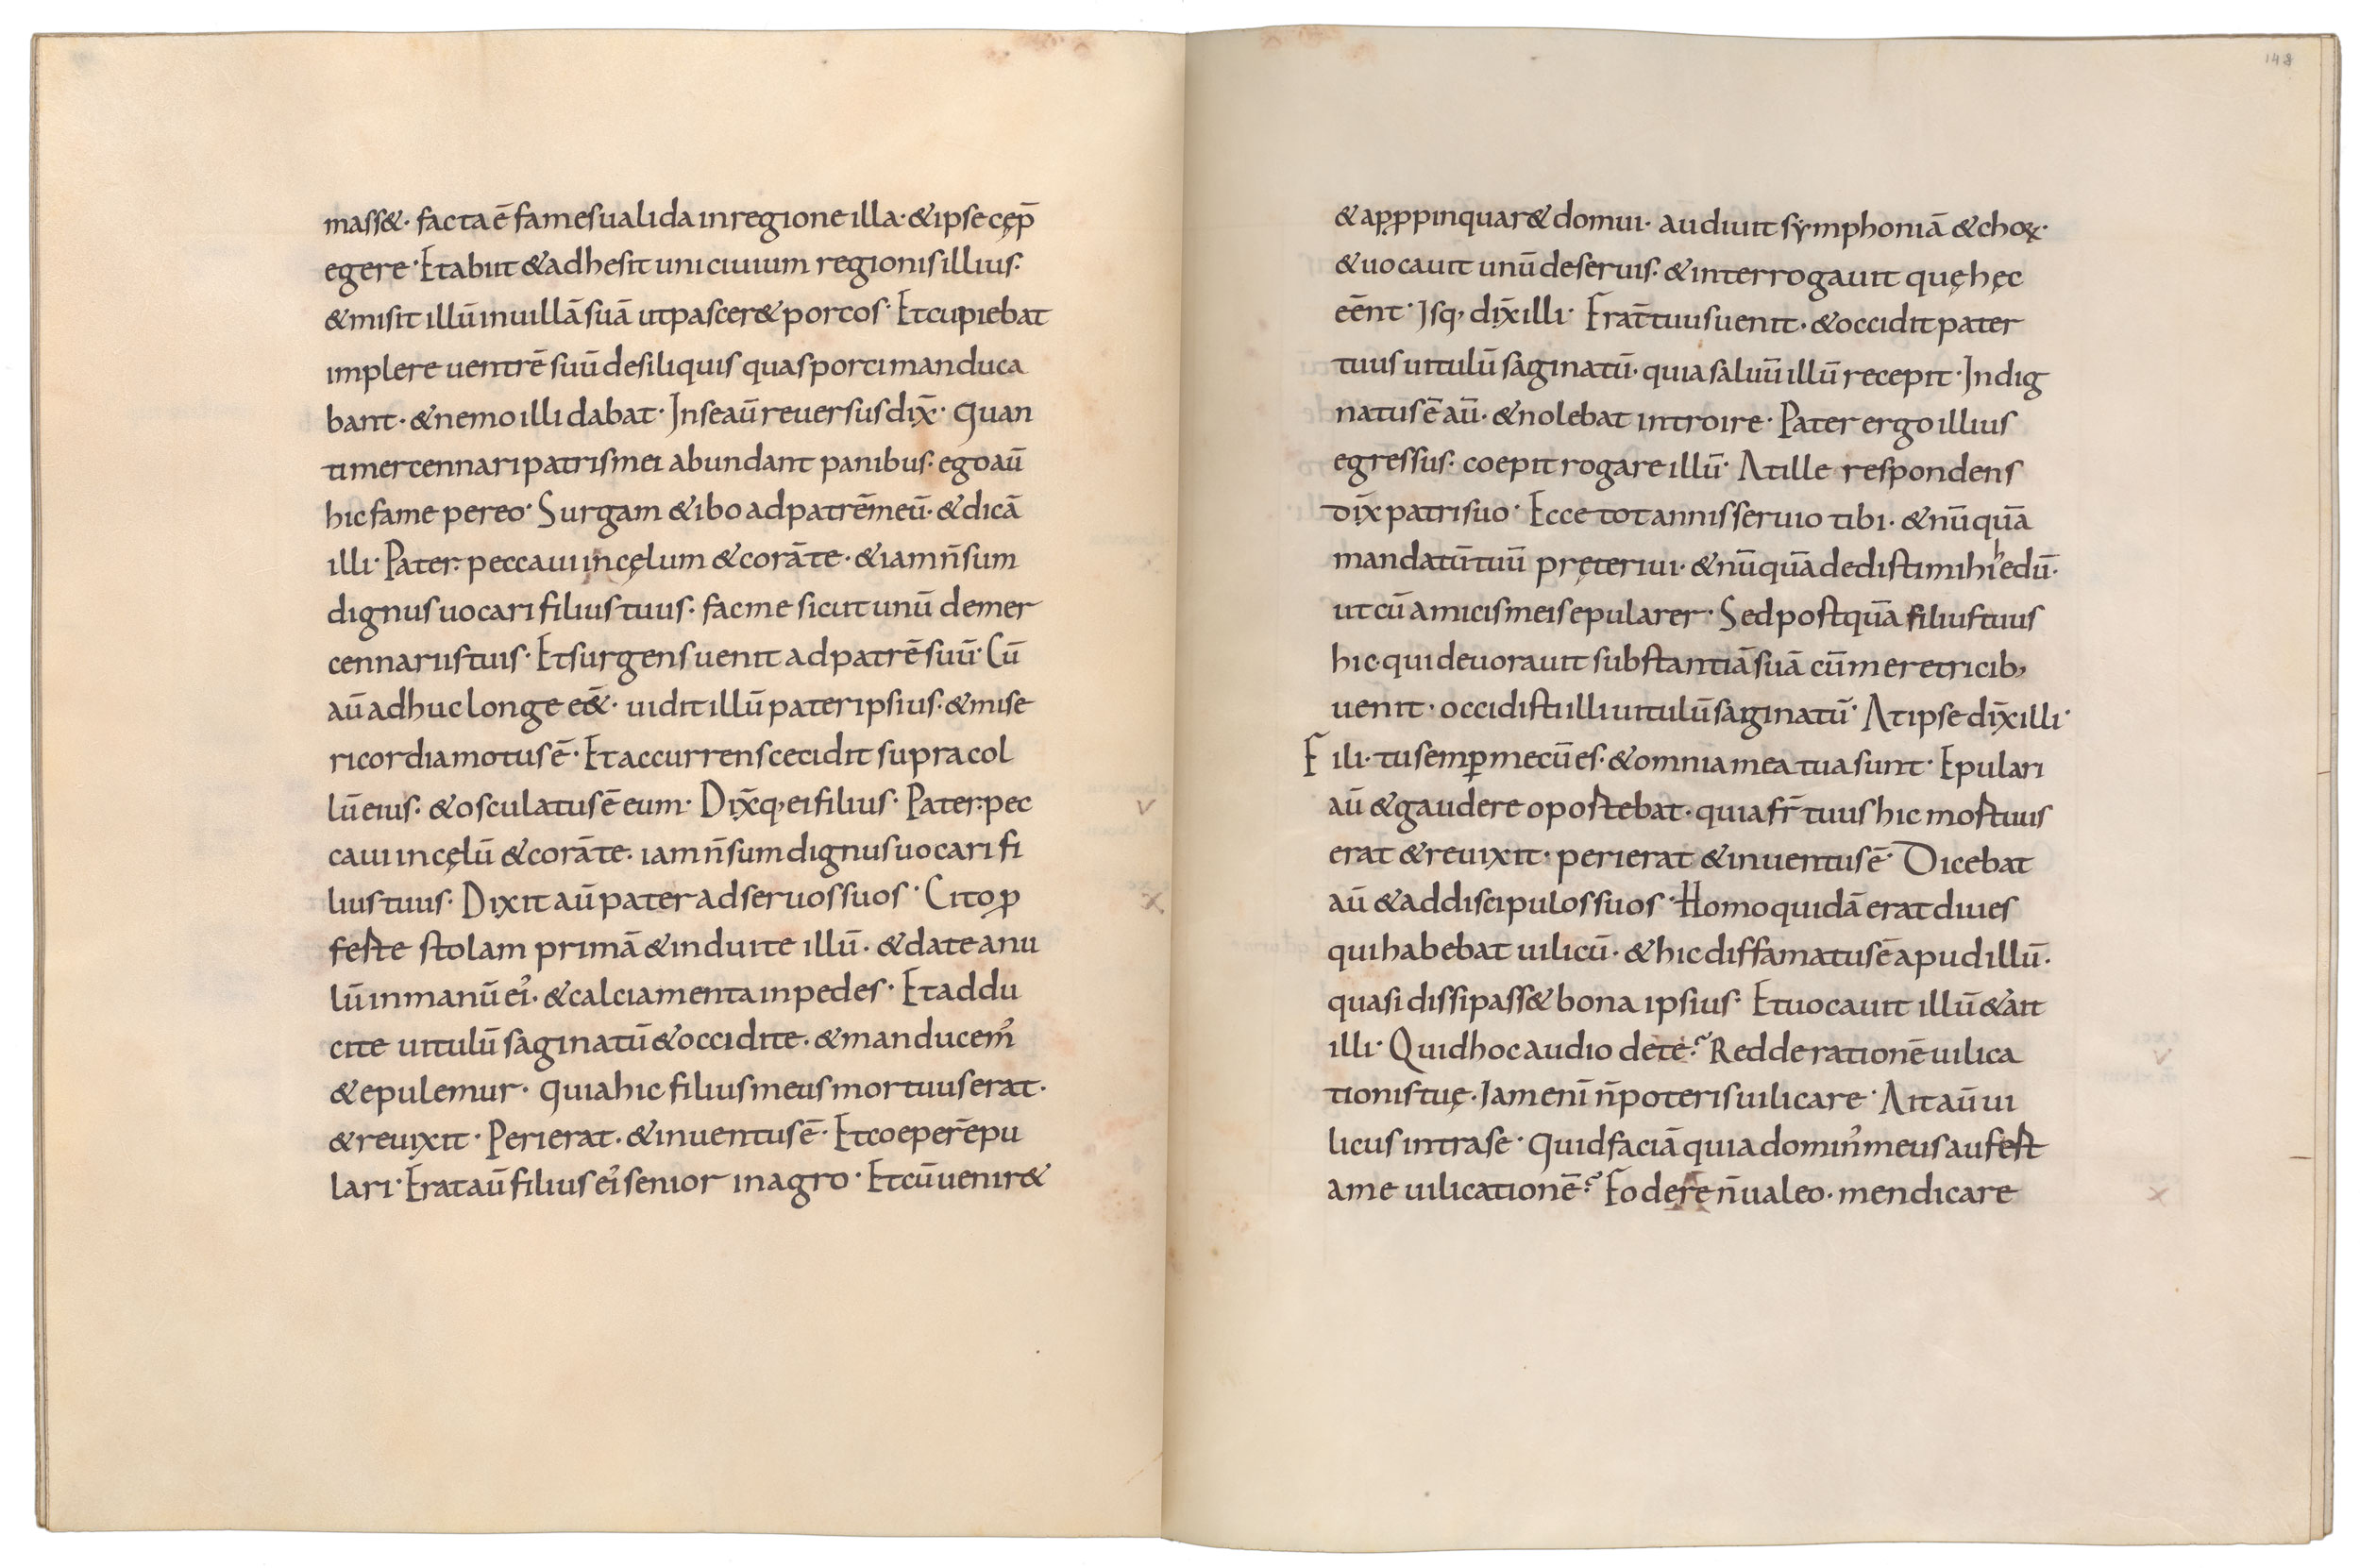 mass&. facta ē fames ualida in regione illa. & ipse cęp̄
egere. Et abiit & adhesit uni ciuium regionis illius.
& misit illū in uillā suā ut pascer& porcos. Et cupiebat
implere uentrē suū de siliquis quas porci manduca
bant. & nemo illi dabat. In se aū reuersus dix̄. Quan
ti mercennari patris mei abundant panibus. ego aū
hic fame pereo. Surgam & ibo ad patrē meū. & dicā
illi. Pater. peccaui in cęlum & corā te. & iam n̄ sum
dignus uocari filius tuus. fac me sicut unū de mer
cennariis tuis. Et surgens uenit ad patrē suū. Cū
aū adhuc longe e&̄. uidit illū pater ipsius. & mise
ricordia motus ē. Et accurrens cecidit supra col
lū eius. & osculatus ē eum. Dix̄q, ei filius. Pater. pec
caui in cęlū & corā te. iam n̄ sum dignus uocari fi
lius tuus. Dixit aū pater ad seruos suos. Cito ꝓ
ferte stolam primā & induite illū. & date anu
lū in manū ei᾽. & calciamenta in pedes. Et addu
cite uitulū saginatū & occidite. & manducem᾽
& epulemur. quia hic filius meus mortuus erat.
& reuixit. Perierat. & inuentus ē. Et coeper̄ epu
lari. Erat aū filius ei᾽ senior in agro. Et cū uenir&
148
& apꝓpinquar& domui. audiuit sẏmphoniā & choꝝ.
& uocauit unū de seruis. & interrogauit quę hęc
eēnt. Isq, dix̄ illi. Frat̄ tuus uenit. & occidit pater
tuus uitulū saginatū. quia saluū illū recepit. Indig
natus ē aū. & nolebat introire. Pater ergo illius
egressus. coepit rogare illū. At ille respondens
dix̄ patri suo. Ecce tot annis seruio tibi. & nū quā
mandatū tuū pręteriui. & nū quā dedisti mihi hedū.
ut cū amicis meis epularer. Sed postquā filius tuus
hic. qui deuorauit substantiā suā cū meretricib,
uenit. occidisti illi uitulū saginatū. At ipse dix̄ illi.
Fili. tu semꝑ mecū es. & omnia mea tua sunt. Epulari
aū & gaudere oportebat. quia fr̄ tuus hic mortuus
erat & reuixit. perierat & inuentus ē. Dicebat
aū & ad discipulos suos. Homo quidā erat diues
qui habebat uilicū. & hic diffamatus ē apud illū.
quasi dissipass& bona ipsius. Et uocauit illū & ait
illi. Quid hoc audio de te? Redde rationē uilica
tionis tuę. Iam enī n̄ poteris uilicare. Ait aū ui
licus intra se. Quid faciā quia domin᾽ meus aufert
a me uilicationē? Fodere n̄ ualeo. mendicare